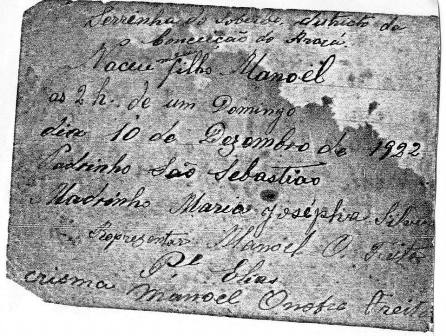 Serrinha do Soberbo, districto da
Conceição do Araxá.
Naceu meu filho Manoël
as 2 h. de um Domingo
dia 10 de Dezembro de 1922
Padrinho São Sebastião
Madrinha Maria Josépha Silva
Representar Manoel O. Freita
Pe Elias
crisma Manoel Onofre Freita